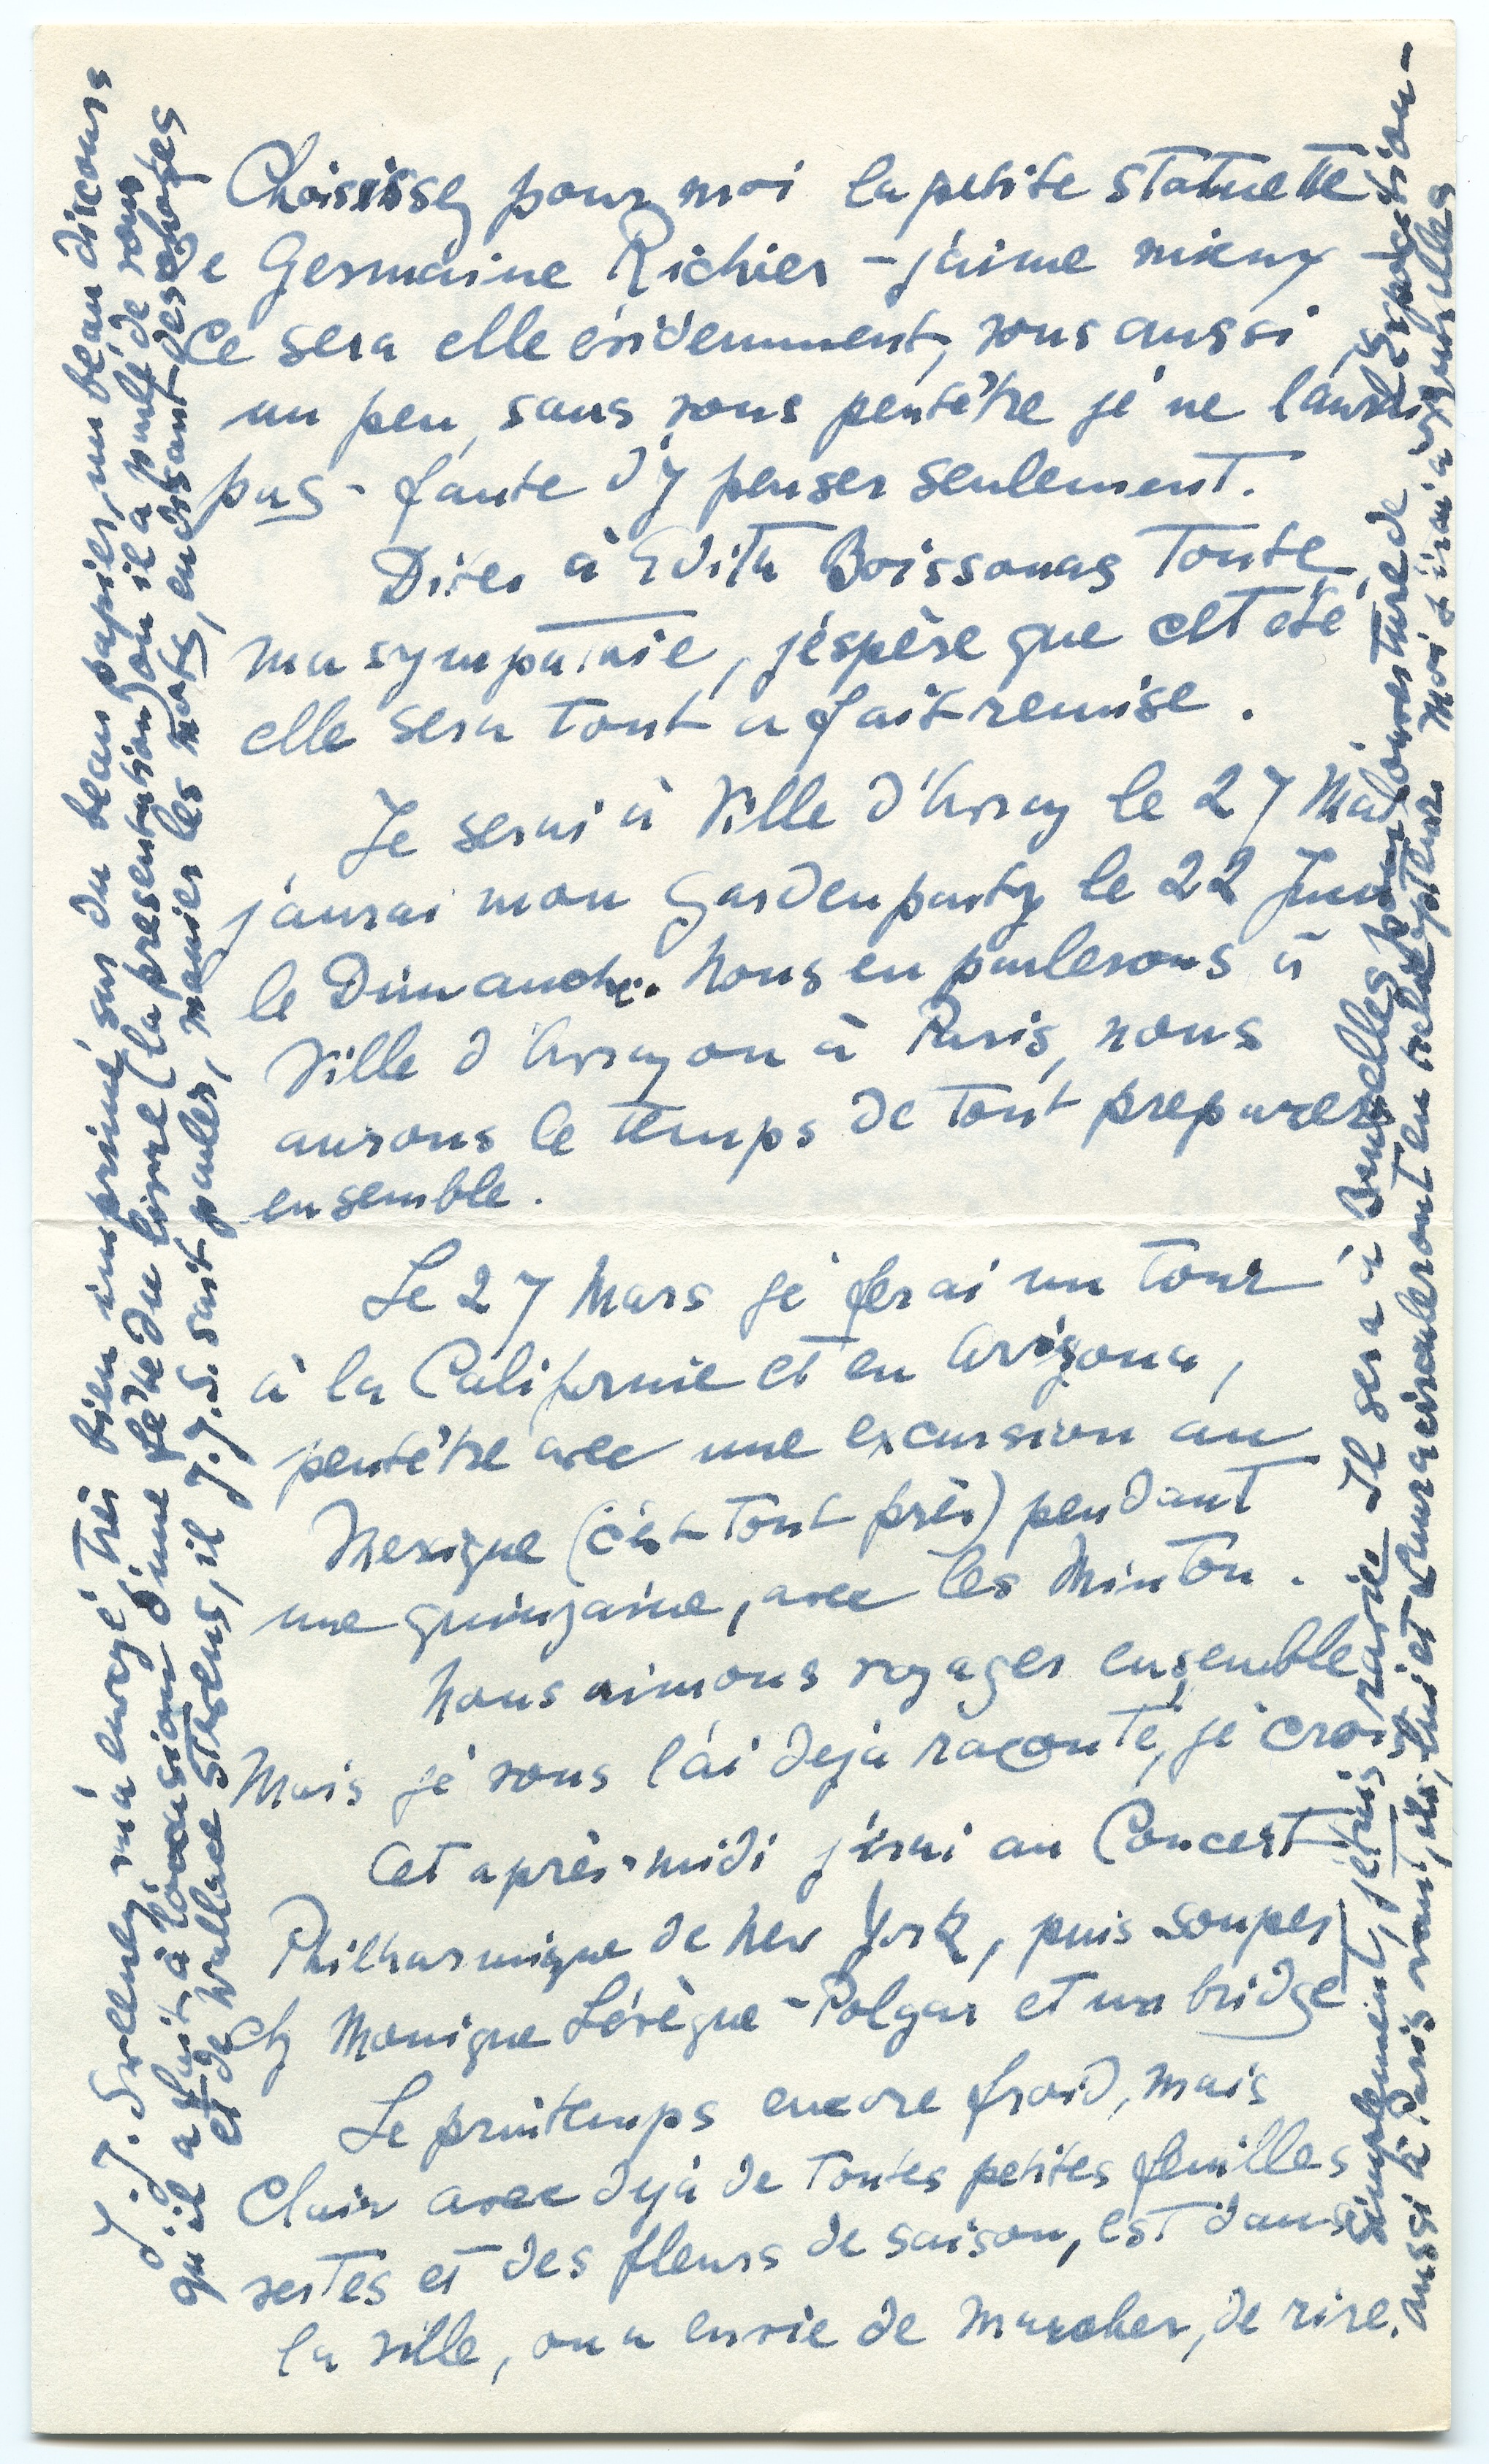 Choisissez pour moi la petite statuette
de Germaine Richier - j'aime mieux
Ce sera elle évidemment, vous aussi
un peu, sans vous peutêtre je ne l'aurai
pas - faute d'y penser seulement.
Dites à Edith Boissonas toute
ma sympathie, j'espère que cet été
elle sera tout a fait remise.
Je serai à Ville d'Avray le 27 Mai
j'aurai mon Gardenparty le 22 Juin
le Dimanche. Nous en parlerons à
Ville d'Avray ou à Paris, nous
aurons le temps de tout preparer
ensemble.
Le 27 Mars je ferai un tour
à la Californie et en Arizona,
peutêtre avec une excursion au
Mexique (c'est tout près) pendant
une quinzaine, avec les Minton.
Nous aimons voyager ensemble
Mais je vous l'ai dejà raconté, je crois
Cet après-midi j'irai au Concert
Philharmique de New York, puis souper
chz Monique Lévèque-Polgar et un bridge
Le printemps encore froid, mais
Clair avec dejà de toutes petites feuilles
vertes et des fleurs de saison, est dans
la ville, on a envie de marcher, de rire,
simplement, je suis ravie. Il sera à Bruxelles pour l'ouverture de l'Exposition-
aussi à Paris, lui et Laura circuleront en Moi j'irai à
J. J. Sweeney m'a envoyé, très bien imprimé, sur du beau papier, un beau discours
qu'il a fait à l'occasion d'une fête du livre (la presentation) ou il a parlé de vous
et de Wallace Stevens, il J.J.S. sait parler, manier les mots, en disant des choses